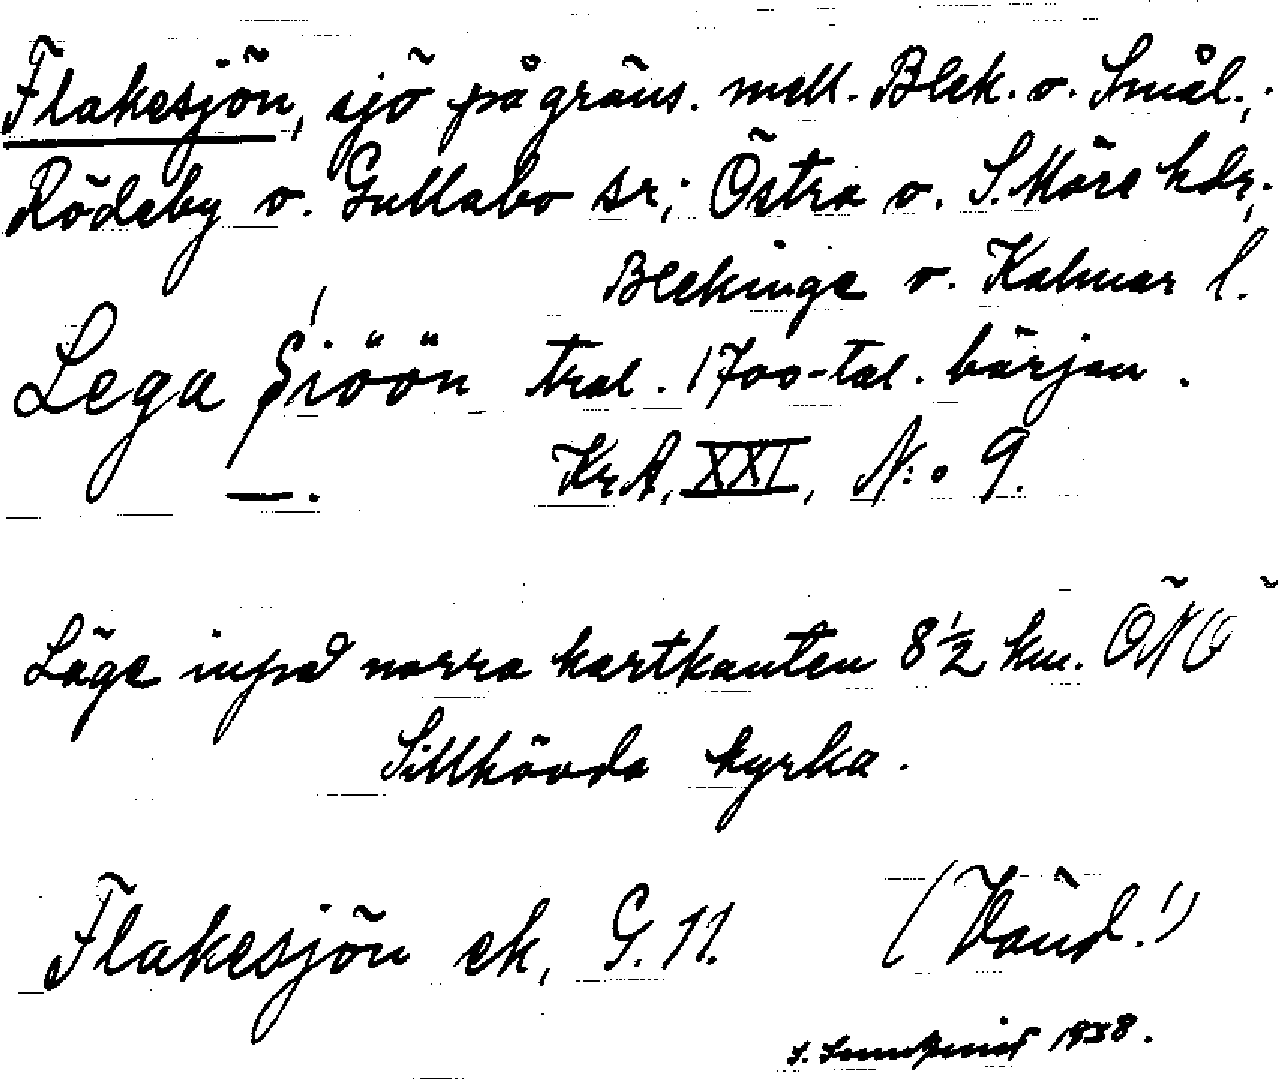 Flakesjön, sjö på gräns. mell. Blek. o. Smål.;
Rödeby o. Gullabo sr; Östra o. S. Möre hdr;
Blekinge o. Kalmar l.
Lega Siöön tral. 1700-tal. början.
KrA, XXI, N:o 9.
Läge inpå norra kartkanten 8 1/2 km. ÖNO
Sillhövda kyrka.
Flakesjön ek, G. 11. (Vänd!)
1938.